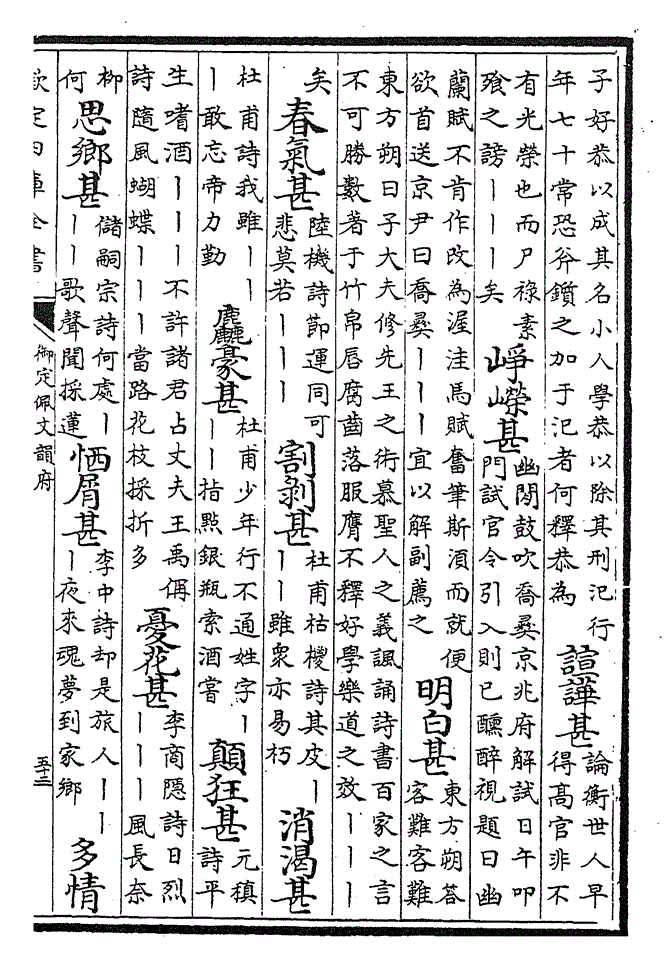 子好恭以成其名小人學恭以除其刑氾行
年七十常恐斧鑕之加于氾者何釋恭為
諠譁甚
論衡世人早
得高官非不
有光榮也而尸祿素
飱之謗丨丨丨矣
崢嶸甚
幽閒鼓吹喬彛京兆府解試日午叩
門試官令引入則已醺醉視題曰幽
蘭賦不肯作改為渥洼馬賦奮筆斯須而就便
欲首送京尹曰喬彛丨丨丨宜以解副薦之
明白甚
東方朔答
客難客難
東方朔曰子大夫修先王之術慕聖人之義諷誦詩書百家之言
不可勝數著于竹帛唇腐齒落服膺不釋好學樂道之效丨丨丨
矣
春氣甚
陸機詩節運同可
悲莫若丨丨丨
割剝甚
杜甫枯椶詩其皮丨
丨丨雖衆亦易朽
消渴甚
杜甫詩我雖丨丨
丨敢忘帝力勤
麤豪甚
杜甫少年行不通姓字丨
丨丨指點銀瓶索酒嘗
顛狂甚
元稹
詩平
生嗜酒丨丨丨不許諸君占丈夫王禹偁
詩隨風蝴蝶丨丨丨當路花枝採折多
憂花甚
李商隱詩日烈
丨丨丨風長奈
柳
何
思鄉甚
儲嗣宗詩何處丨
丨丨歌聲聞採蓮
恓屑甚
李中詩却是旅人丨丨
丨夜來魂夢到家鄉
多情
欽定四庫全書
御定佩文韻府
五十三